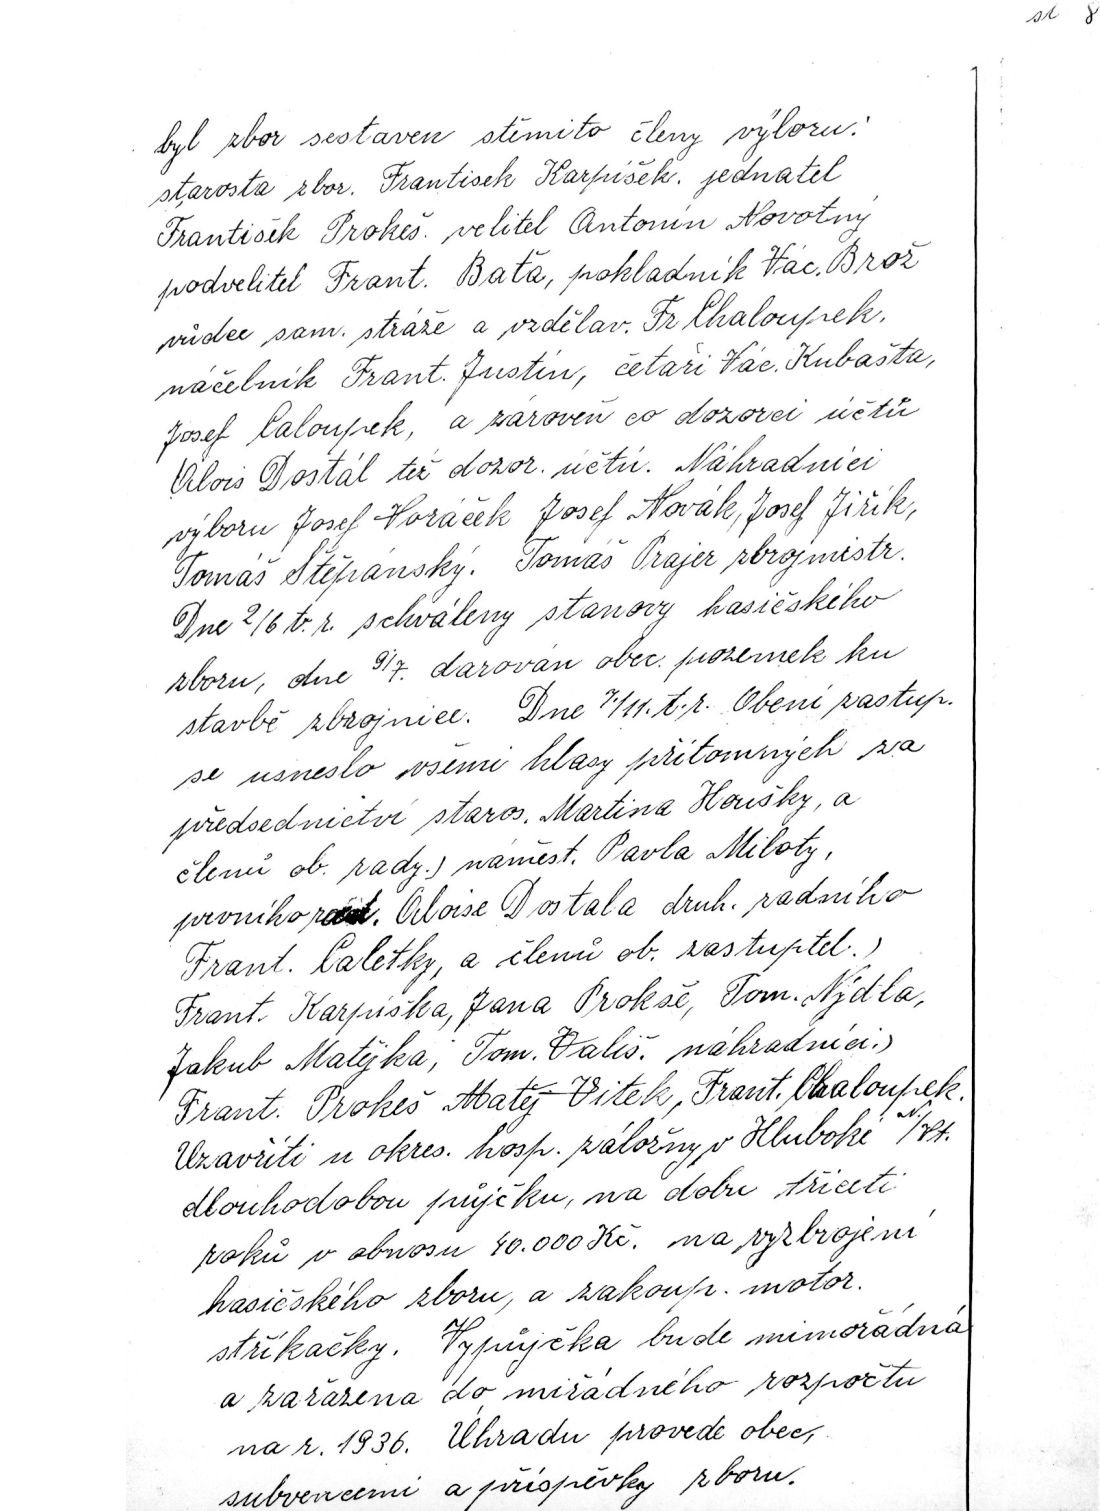 st 8
byl zbor sestaven stěmito členy výboru:
starosta zbor. Frantisek Karpíšek. jednatel
František Prokeš. velitel Antonín Novotný
podvelitel Frant. Baťa, pokladník Vác. Brož
vůdce sam. stráže a vzdělav. Fr Chaloupek.
náčelník Frant. Justin, četaři Vác. Kubašta,
Josef Caloupek, a zároveň co dozorci účtů
Alois Dostál též dozor. účtů. Náhradníci
výboru Josef Voráček Josef Novák, Josef Jiřík,
Tomáš Štěpánský. Tomáš Prajer zbrojmistr.
Dne 2/6 t. r. schváleny stanovy hasičského
zboru, dne 9/7. darován obec. pozemek ku
stavbě zbrojnice. Dne 7/11. t. r. Obení zastup.
se usneslo všemi hlasy přítomných za
předsednictví staros. Martina Houšky, a
členů ob. rady.) náměst. Pavla Miloty,
prvního rad. Aloise Dostala druh. radního
Frant. Caletky, a členů ob. zastuptel.)
Frant. Karpiška, Jana Prokše, Tom. Nýdla,
Jakub Matějka, Tom. Vališ. náhradníci.)
Frant. Prokeš Matěj Vitek, Frant. Chaloupek.
Uzavříti u okres. hosp. záložny v Hluboké N/Vt.
dlouhodobou půjčku, na dobu třiceti
roků v obnosu 40.000 Kč. na vyzbrojení
hasičského zboru, a zakoup. motor.
stříkačky. Vypůjčka bude mimořádná
a zařazena do miřádného rozpočtu
na r. 1936. Úhradu provede obec,
subvencemi a příspěvky zboru.